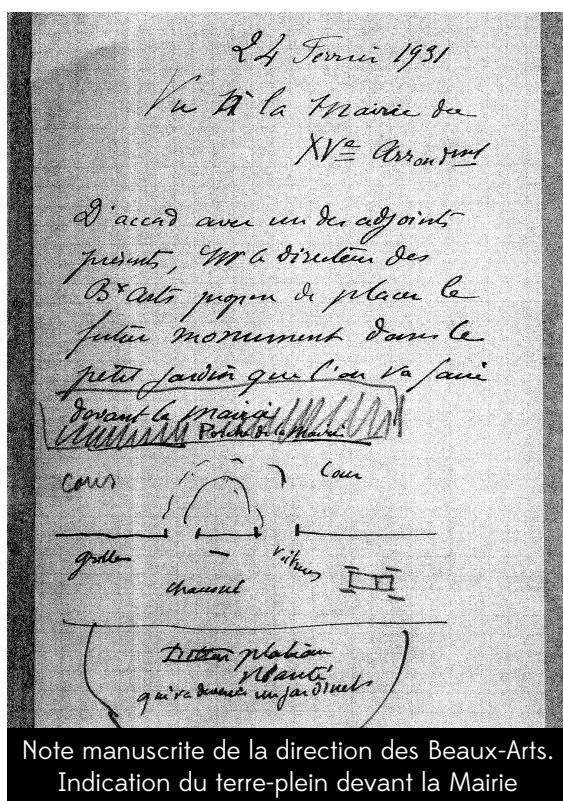 24 Février 1931
Vu à la Mairie du
XVe Arrondmt
D'accord avec un des adjoints
présents, Mr le directeur des
Bx Arts propose de placer le
futur monument dans le
petit jardin que l'on va faire
devant la mairie
Porche de la Mairie
Cour
Cour
grilles
voitures
chaussée
plateau
planté
qui va devenir un jardinet
Note manuscrite de la direction des Beaux-Arts.
Indication du terre-plein devant la Mairie